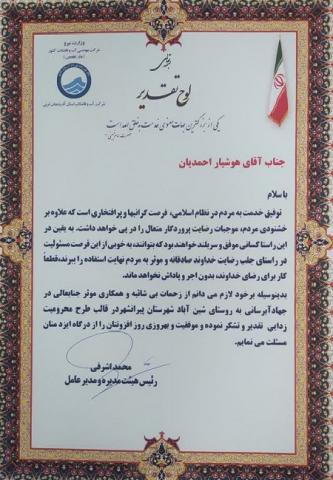 وزارت نیرو
شرکت مهندسی آب و فاضلاب کشور
شرکت آب و فاضلاب استان آذربایجان غربی
لوح تقدیر
جناب آقای هوشیار احمدیان
با سلام
توفیق خدمت به مردم در نظام اسلامی، فرصت گرانبها و پرافتخاری است که علاوه بر
خشنودی مردم، موجبات رضایت پروردگار متعال را در پی خواهد داشت. به یقین در
این راستا کسانی موفق و سربلند خواهند بود که بتوانند، به خوبی از این فرصت مسئولیت
در راستای جلب رضایت خداوند صادقانه و موثر به مردم نهایت استفاده را ببرند، قطعاً
کار برای رضای خداوند، بدون اجر و پاداش نخواهد ماند.
بدینوسیله برخود لازم می دانم از زحمات بی شائبه و همکاری موثر جنابعالی در
جهاد آبرسانی به روستای شین آباد شهرستان پیرانشهر در قالب طرح محرومیت
زدایی تقدیر و تشکر نموده و موفقیت و بهروزی روز افزونتان را از درگاه ایزد منان
مسئلت می نمایم.
محمد اشرفی
رئیس هیئت مدیره و مدیر عامل